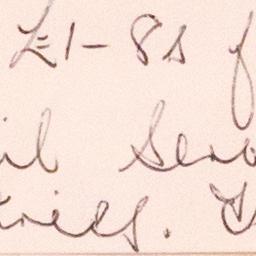 £1-8s f
il Ser
ries.